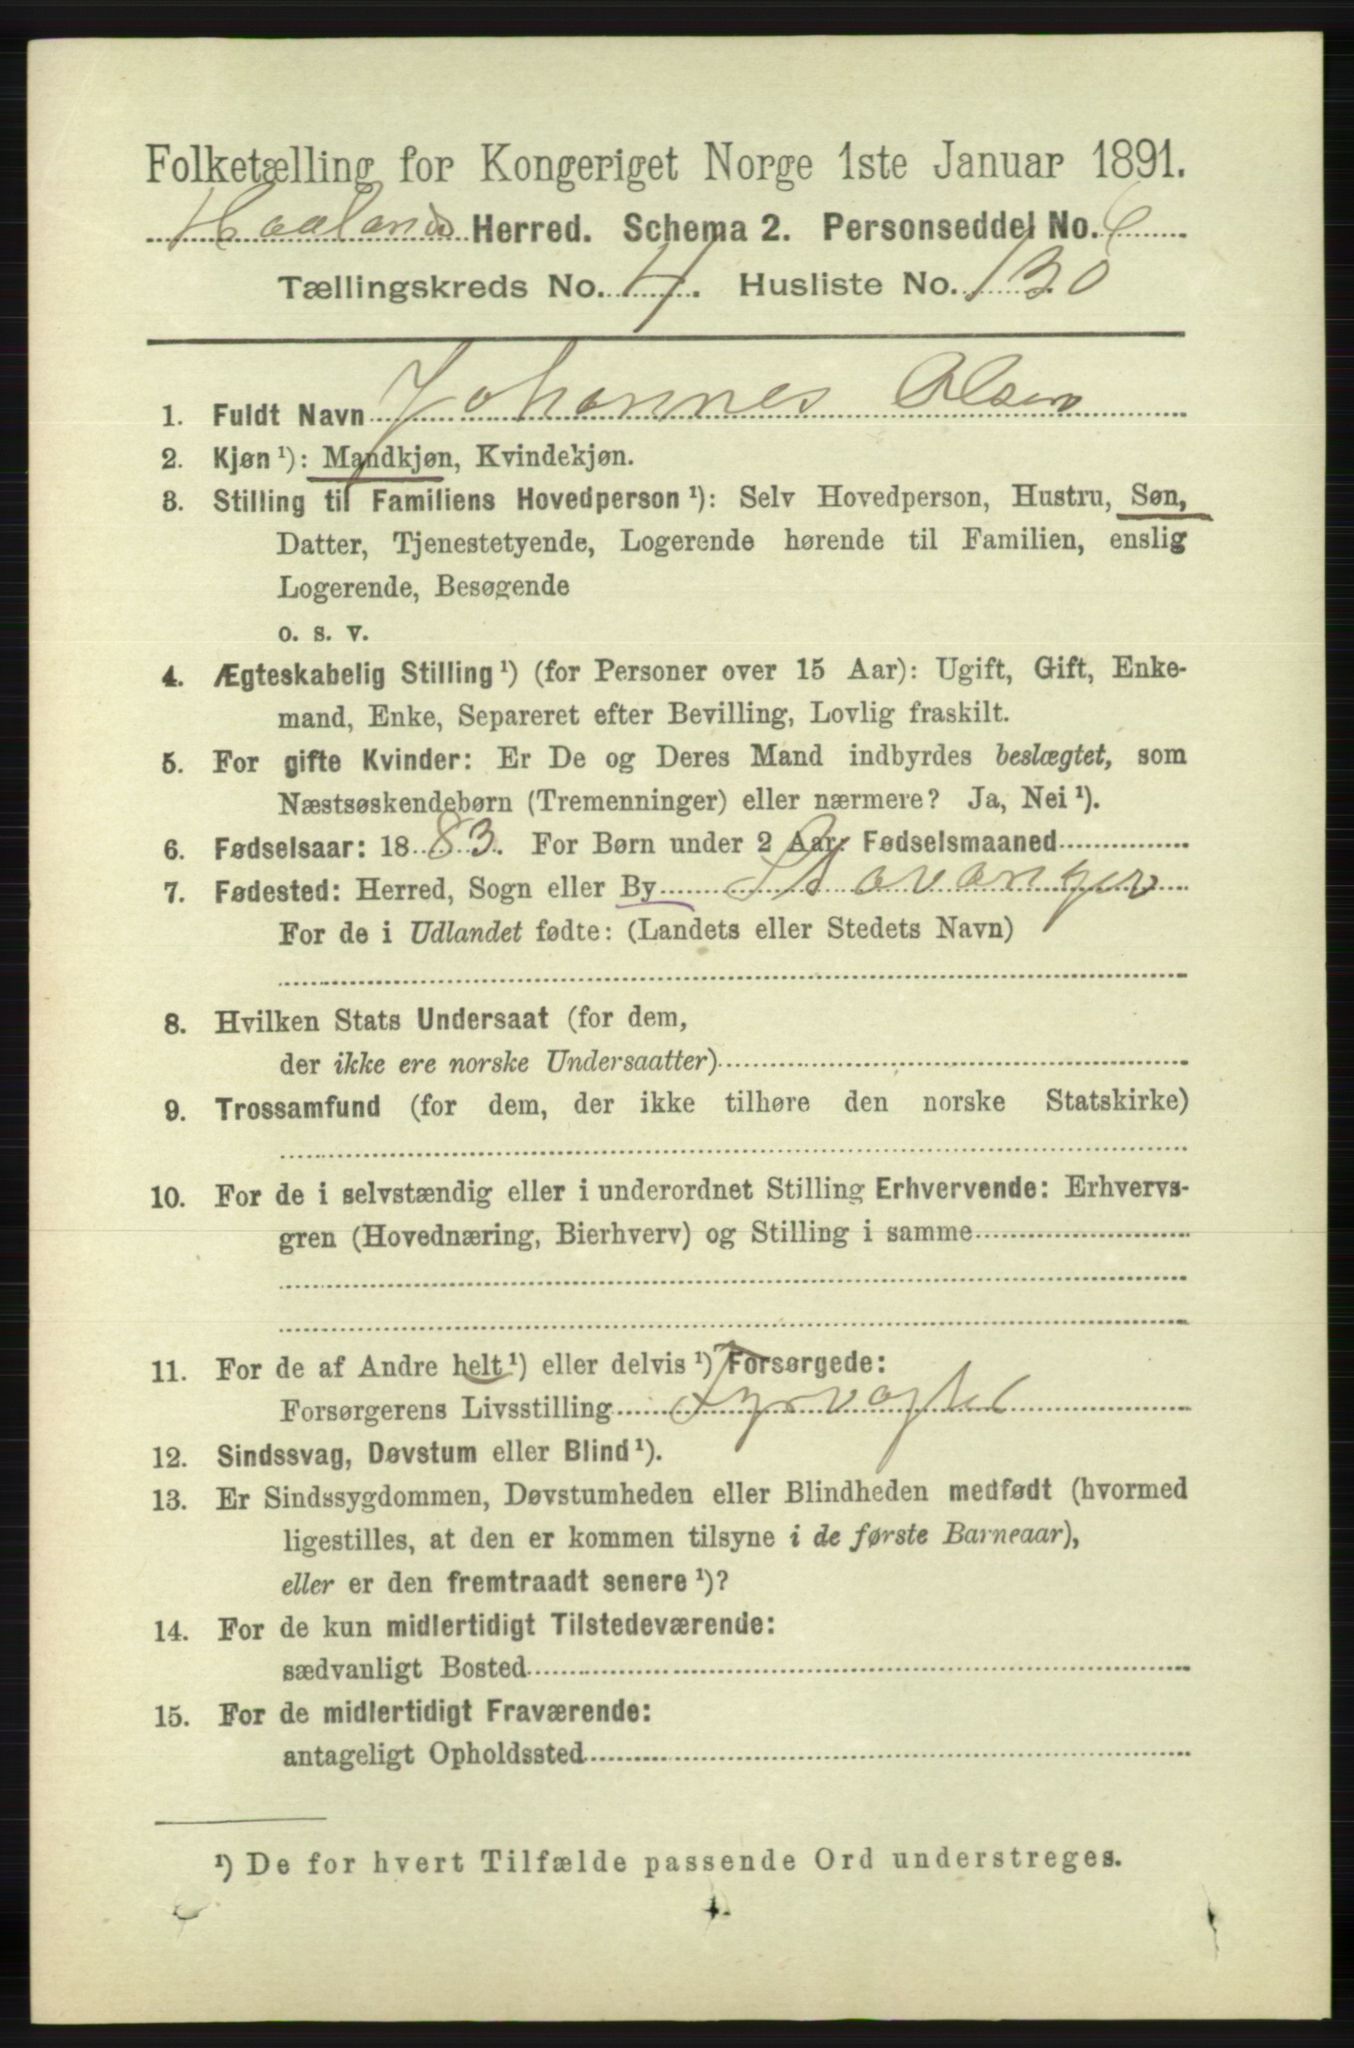 Folketælling for Kongeriget Norge 1ste Januar 1891.
Haalands Herred. Schema 2. Personseddel No. 6
Tællingskreds No. 4. Husliste No. 130
1. Fuldt Navn Johannes Olsen
2. Kjøn ¹): Mandkjøn, Kvindekjøn.
3. Stilling til Familiens Hovedperson ¹): Selv Hovedperson, Hustru, Søn,
Datter, Tjenestetyende, Logerende hørende til Familien, enslig
Logerende, Besøgende
o. s. v.
4. Ægteskabelig Stilling ¹) (for Personer over 15 Aar): Ugift, Gift, Enke-
mand, Enke, Separeret efter Bevilling, Lovlig fraskilt.
5. For gifte Kvinder: Er De og Deres Mand indbyrdes beslægtet, som
Næstsøskendebørn (Tremenninger) eller nærmere? Ja, Nei ¹).
6. Fødselsaar: 1883. For Børn under 2 Aar: Fødselsmaaned
7. Fødested: Herred, Sogn eller By Stavanger
For de i Udlandet fødte: (Landets eller Stedets Navn)
8. Hvilken Stats Undersaat (for dem,
der ikke ere norske Undersaatter)
9. Trossamfund (for dem, der ikke tilhøre den norske Statskirke)
10. For de i selvstændig eller i underordnet Stilling Erhvervende: Erhvervs-
gren (Hovednæring, Bierhverv) og Stilling i samme
11. For de af Andre helt ¹) eller delvis ¹) Forsørgede:
Forsørgerens Livsstilling Fyrvogter
12. Sindssvag, Døvstum eller Blind ¹).
13. Er Sindssygdommen, Døvstumheden eller Blindheden medfødt (hvormed
ligestilles, at den er kommen tilsyne i de første Barneaar),
eller er den fremtraadt senere ¹)?
14. For de kun midlertidigt Tilstedeværende:
sædvanligt Bosted
15. For de midlertidigt Fraværende:
antageligt Opholdssted
¹) De for hvert Tilfælde passende Ord understreges.